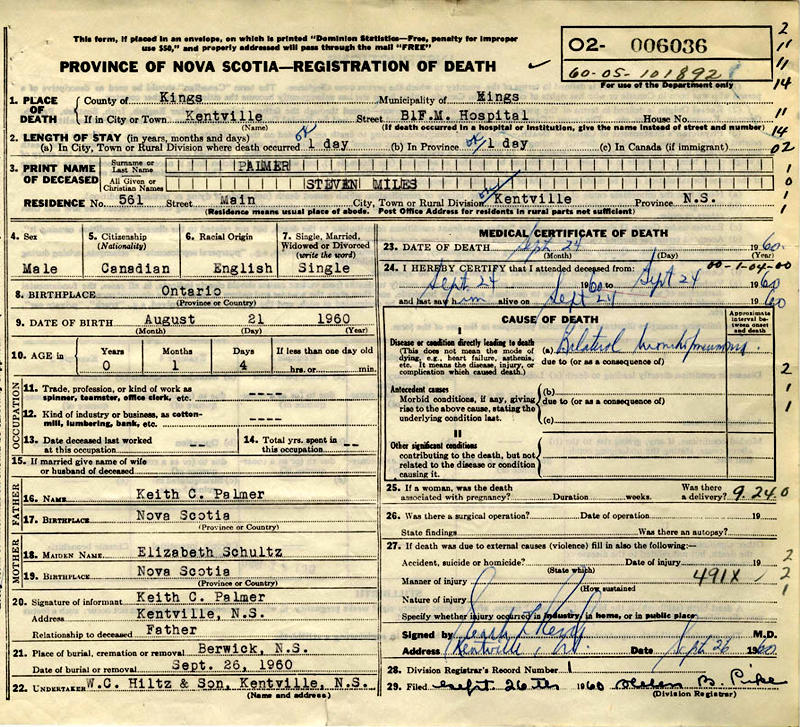 This form, if placed in an envelope, on which is printed "Dominion Statistics—Free, penalty for improper
use $50," and properly addressed will pass through the mail "FREE"
PROVINCE OF NOVA SCOTIA—REGISTRATION OF DEATH
02- 006036
60-05-101892
For use of the Department only
1. PLACE OF DEATH
County of Kings Municipality of Kings
If in City or Town Kentville Street BlF.M. Hospital House No.
(Name) (If death occurred in a hospital or institution, give the name instead of street and number)
2. LENGTH OF STAY (in years, months and days)
(a) In City, Town or Rural Division where death occurred 1 day (b) In Province 1 day (c) In Canada (if immigrant)
3. PRINT NAME OF DECEASED
Surname or Last Name PALMER
All Given or Christian Names STEVEN MILES
RESIDENCE No. 561 Street Main City, Town or Rural Division Kentville Province N.S.
(Residence means usual place of abode. Post Office Address for residents in rural parts not sufficient)
4. Sex
Male
5. Citizenship (Nationality)
Canadian
6. Racial Origin
English
7. Single, Married, Widowed or Divorced (write the word)
Single
8. BIRTHPLACE Ontario
(Province or Country)
9. DATE OF BIRTH August 21 1960
(Month) (Day) (Year)
10. AGE in Years Months Days If less than one day old
0 1 4 hrs. or min.
OCCUPATION
11. Trade, profession, or kind of work as spinner, teamster, office clerk, etc. ----
12. Kind of industry or business, as cotton-mill, lumbering, bank, etc. ----
13. Date deceased last worked at this occupation --
14. Total yrs. spent in this occupation --
15. If married give name of wife or husband of deceased
FATHER
16. NAME Keith C. Palmer
17. BIRTHPLACE Nova Scotia
(Province or Country)
MOTHER
18. MAIDEN NAME Elizabeth Schultz
19. BIRTHPLACE Nova Scotia
(Province or Country)
20. Signature of informant Keith C. Palmer
Address Kentville, N.S.
Relationship to deceased Father
21. Place of burial, cremation or removal Berwick, N.S.
Date of burial or removal Sept. 26, 1960
22. UNDERTAKER W.C. Hiltz & Son, Kentville, N.S.
(Name and address)
MEDICAL CERTIFICATE OF DEATH
23. DATE OF DEATH Sept. 24 1960
(Month) (Day) (Year)
00-1-04-00
24. I HEREBY CERTIFY that I attended deceased from:
Sept 24 1960 to Sept 24 1960
and last saw him alive on Sept 24 1960
CAUSE OF DEATH
Approximate interval between onset and death
I
Disease or condition directly leading to death
(This does not mean the mode of dying, e.g., heart failure, asthenia, etc. It means the disease, injury, or complication which caused death.)
(a) Bilateral
due to (or as a consequence of)
Antecedent causes
Morbid conditions, if any, giving rise to the above cause, stating the underlying condition last.
(b)
due to (or as a consequence of)
(c)
II
Other significant conditions
contributing to the death, but not related to the disease or condition causing it.
25. If a woman, was the death associated with pregnancy? Duration weeks. Was there a delivery? 9.24.0
26. Was there a surgical operation? Date of operation 19
State findings Was there an autopsy?
27. If death was due to external causes (violence) fill in also the following:—
Accident, suicide or homicide? Date of injury 19
(State which)
Manner of injury 491X
(How sustained
Nature of injury
Specify whether injury occurred in industry, in home, or in public place
Signed by M.D.
Address Kentville, Date Sept 26 1960
28. Division Registrar's Record Number 1
29. Filed Sept. 26th 1960 B. Pike
(Division Registrar)